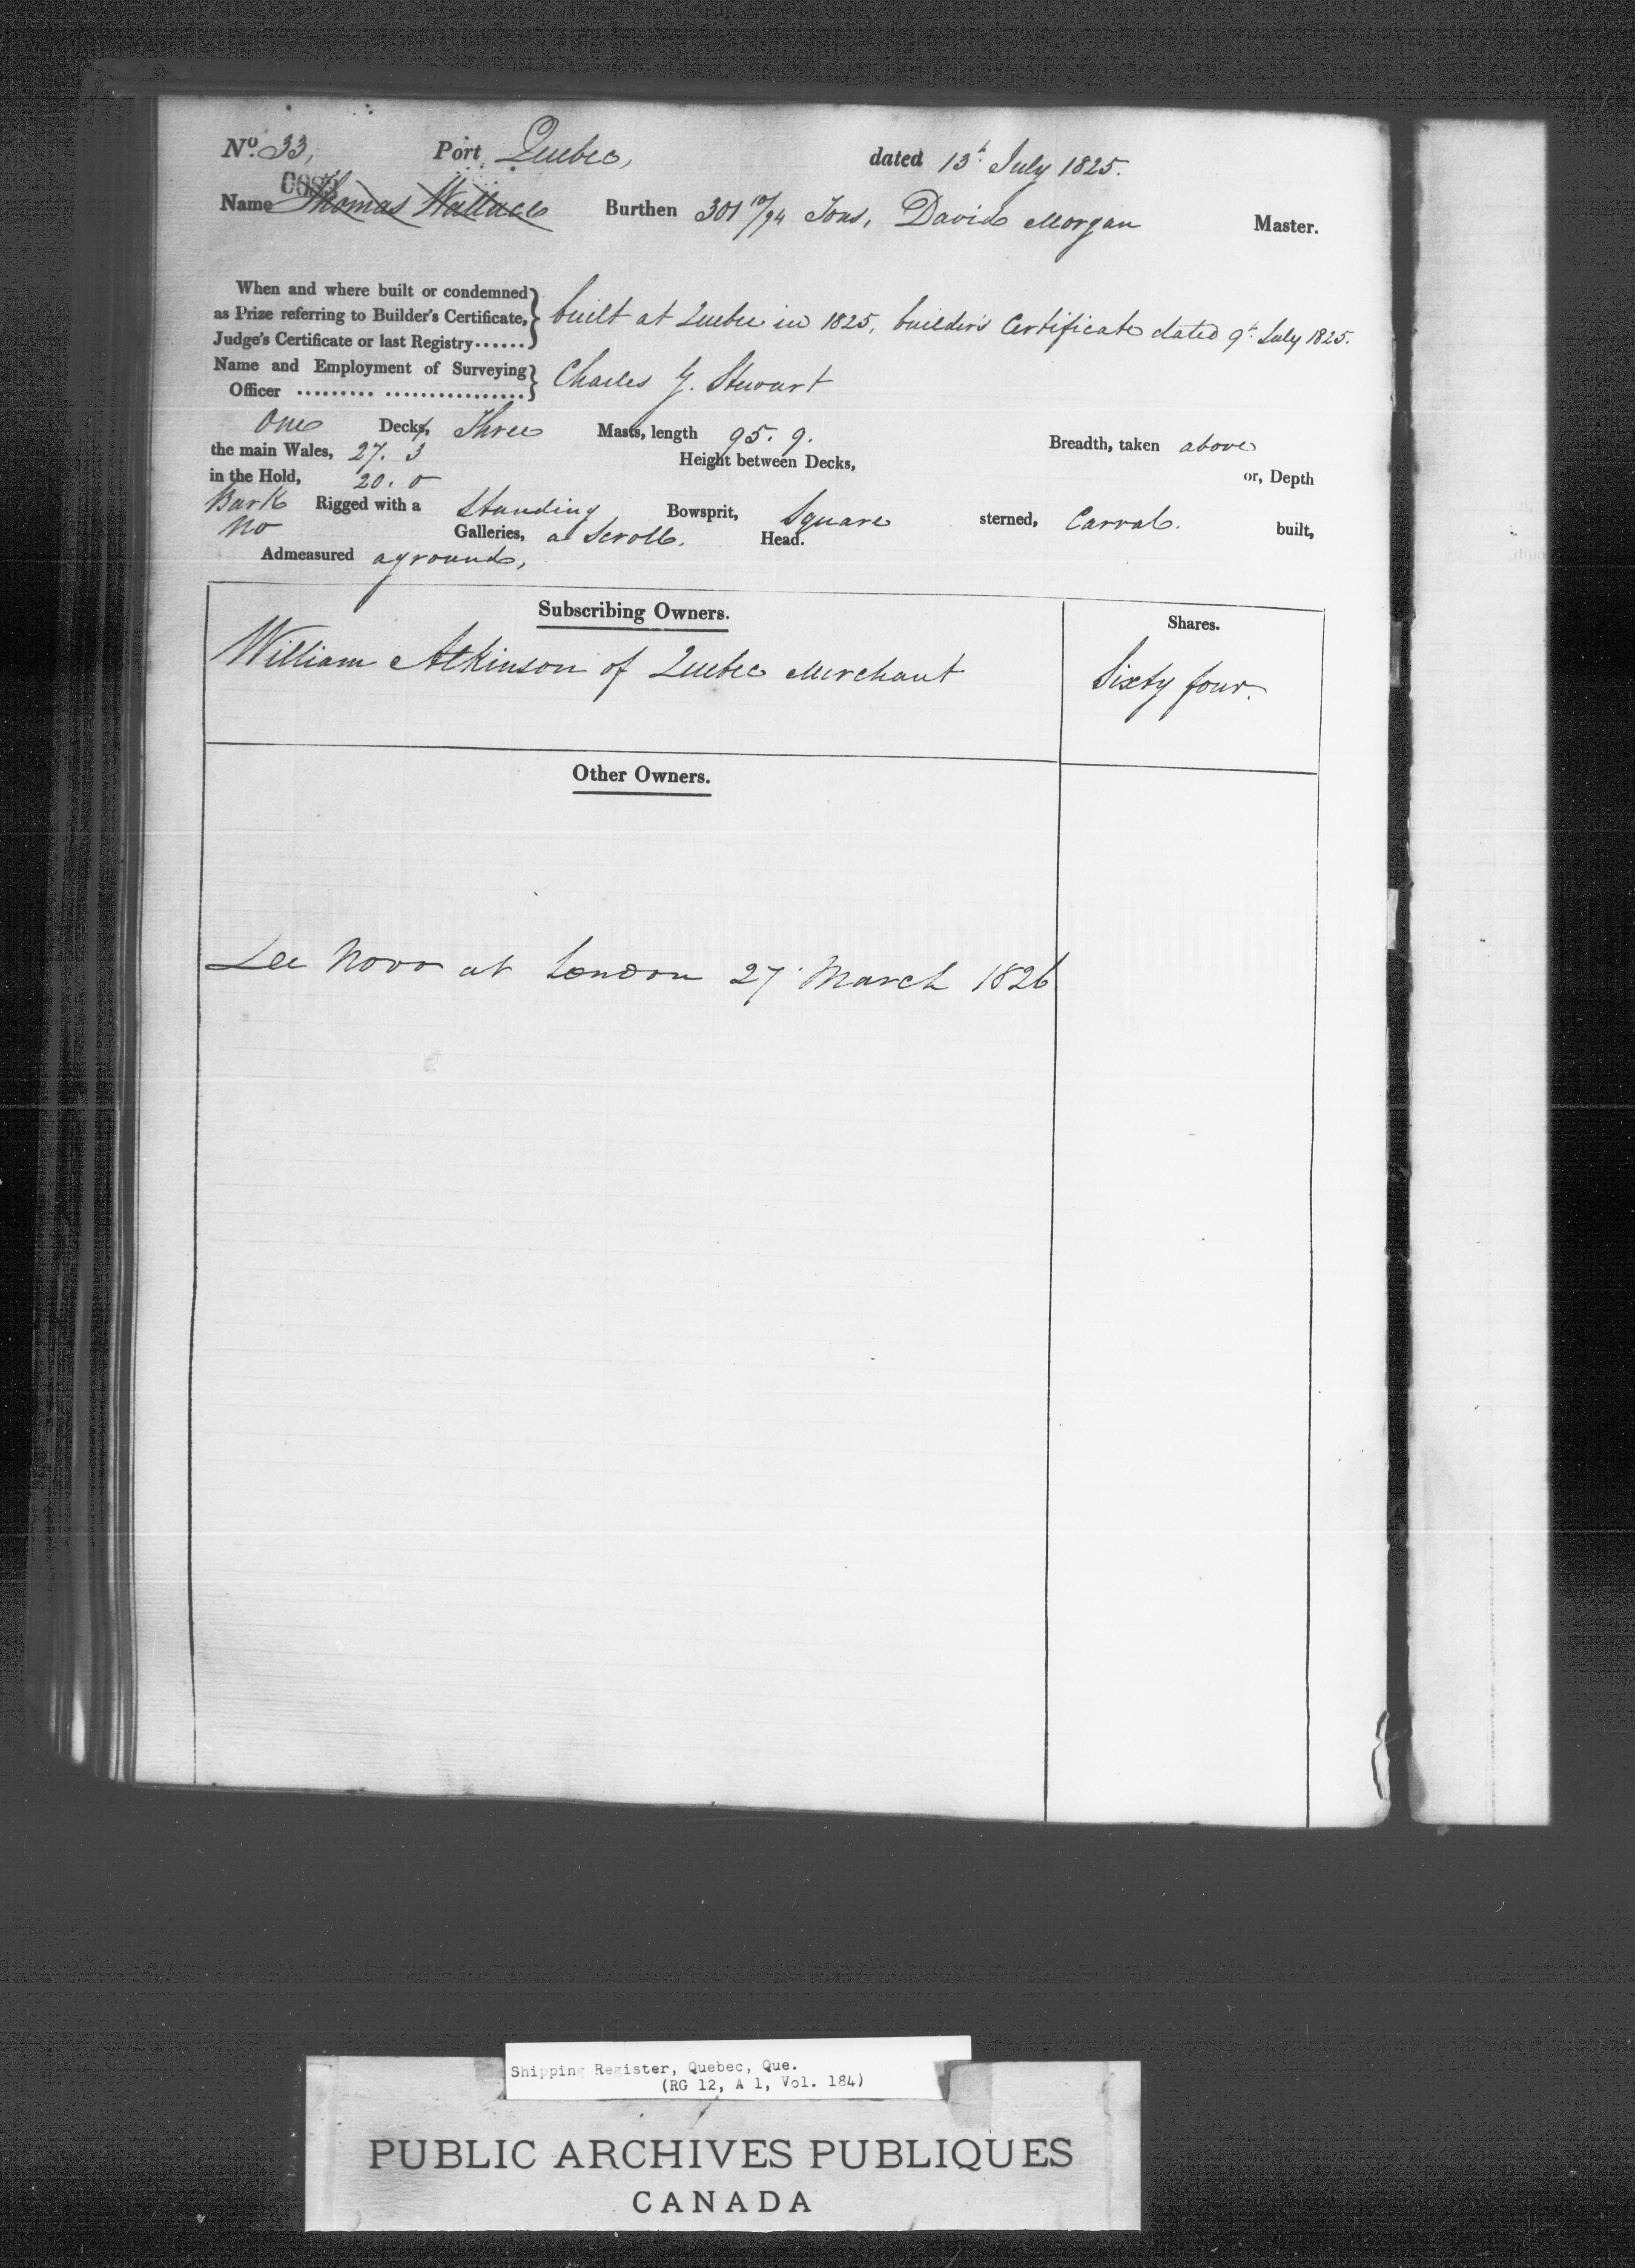 No. 33, Port Quebec, dated 13t. July 1825.
Name Thomas Wallace Burthen 301 10/94 Tons, David Morgan Master.
When and where built or condemned
as Prize referring to Builder's Certificate, built at Quebec in 1825, builders Certificate dated 9t. July 1825.
Judge's Certificate or last Registry......
Name and Employment of Surveying
Officer ......... ................. Charles G. Stewart
One Decks, Three Masts, length 95. 9. Breadth, taken above
the main Wales, 27. 3 Height between Decks,
in the Hold, 20. 0 or, Depth
Bark Rigged with a Standing Bowsprit, Square sterned, Carval. built,
No Galleries, a Scroll. Head.
Admeasured aground,
Subscribing Owners. Shares.
William Atkinson of Quebec Merchant Sixty four.
Other Owners.
at London 27 March 1826
Shipping Register, Quebec, Que.
(RG 12, A 1, Vol. 184)
PUBLIC ARCHIVES PUBLIQUES
CANADA